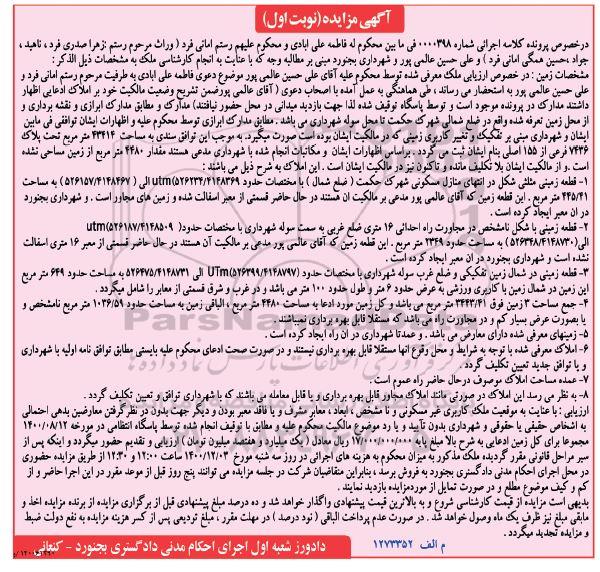 آگهی مزایده (نوبت اول)
درخصوص پرونده کلاسه اجرائی شماره ۰۰۰۰۳۹۸ فی ما بین محکوم له فاطمه علی ابادی و محکوم علیهم رستم امانی فرد ( وراث مرحوم رستم :زهرا صدری فرد ، ناهید ،
جواد ،حسین همگی امانی فرد ) و علی حسین عالمی پور و شهرداری بجنورد مبنی بر مطالبه وجه که با عنایت به انجام کارشناسی ملک به مشخصات ذیل الذکر :
مشخصات زمین : در خصوص ارزیابی ملک معرفی شده توسط محکوم علیه آقای علی حسین عالمی پور موضوع دعوی فاطمه علی ابادی به طرفیت مرحوم رستم امانی فرد و
علی حسین عالمی پور به استحضار می رساند ، طی هماهنگی به عمل آمده با اصحاب دعوی ( آقای عالمی پورضمن تشریح وضعیت مالکیت خود بر املاک ادعایی اظهار
داشتند مدارک در پرونده موجود است و توسط پاسگاه توقیف شده لذا جهت بازدید میدانی در محل حضور نیافتند) مدارک و مطابق مدارک ابرازی و نقشه برداری و
از محل زمین تعرفه شده واقع در ضلع شمالی شهرک حکمت تا محل سوله شهرداری می باشد . مطابق مدارک ابرازی توسط محکوم علیه و اظهارات ایشان توافقی فی مابین
ایشان و شهرداری مبنی بر تفکیک و تغییر کاربری زمینی که در مالکیت ایشان بوده است صورت میگیرد. به موجب این توافق سندی به ساحت ۴۳۴۱۴ متر مربع تحت پلاک
۷۴۳۶ فرعی از ۱۵۵ اصلی بنام ایشان ثبت می گردد . براساس اظهارات ایشان و مکاتبات انجام شده با شهرداری مدعی هستند مقدار ۴۴۸۰ متر مربع از زمین ساحی نشده
است .و از مالکیت ایشان بلا تکلیف مانده و تاکنون نیز در مالکیت ایشان است . این املاک به شرح ذیل می باشند :
۱- قطعه زمینی مثلثی شکل در انتهای منازل مسکونی شهرک حکمت ( ضلع شمال ) با مختصات حدود utm(۵۲۶۲۳۴/۴۱۴۸۳۶۹ الی ( ۵۲۶۱۵۷/۴۱۴۸۴۶۷ ) به مساحت
۴۴۵/۴۱ متر مربع . این قطعه زمین که آقای عالمی پور مدعی بر مالکیت ان هستند در حال حاضر قسمتی از معبر اسفالت شده و زمین های مجاور است . و شهرداری بجنورد
در ان معبر ایجاد کرده است .
۲- قطعه زمینی با شکل نامشخص در مجاورت راه احداثی ۱۶ متری ضلع غربی به سمت سوله شهرداری با مختصات حدود( utm(۵۲۶۱۸۷/۴۱۴۸۵۰۹
الی(۵۲۶۳۴۸/۴۱۴۸۷۳۰ ) به مساحت حدود ۲۳۴۹ متر مربع . این قطعه زمین که آقای عالمی پور مدعی بر مالکیت آن هستند در حال حاضر قسمتی از معبر ۱۶ متری اسفالت
نشده است و شهرداری بجنورد در ان معبر ایجاد کرده است .
۳- قطعه زمینی در شمال زمین تفکیکی و ضلع غرب سوله شهرداری با مختصات حدود UTm(۵۲۶۳۹۹/۴۱۴۸۷۹۷) الی ۵۲۶۴۷۵/۴۱۴۸۷۳۱ به مساحت حدود ۶۴۹ متر مربع
این زمین در شمال زمین با کاربری ورزشی به عرض حدود ۶ متر و طول حدود ۱۰۰ متر می باشد . و در غرب و شرق قسمتی از معابر را شامل میگردد .
۴- جمع مساحت ۳ زمین فوق ۳۴۴۳/۴۱ متر مربع می باشد و کل زمین مورد ادعا به مساحت ۴۴۸۰ متر مربع ، الباقی زمین به مساحت حدود ۱۰۳۶/۵۹ متر مربع نامشخص و
یا بصورت عرض بسیار کم و در مجاورت راه می باشد که مستقلا قابل بهره برداری نمیباشند .
۵- زمینهای معرفی شده دارای معارض می باشد . و عمدتا شهرداری در ان راه ایجاد کرده است .
۶- املاک معرفی شده با توجه به شرایط و محل وقوع انها مستقلا قابل بهره برداری نیستند و در صورت صحت ادعای محکوم علیه بایستی مطابق توافق نامه اولیه با شهرداری
و یا توافق جدید تعیین تکلیف گردد .
۷- عمده مساحت املاک موصوف درحال حاضر راه عموم است .
۸- به نظر می رسد این املاک در صورتی مانند املاک مجاور قابل بهره برداری و یا قابل معامله می باشند که با شهرداری توافق و تعیین تکلیف گردد .
ارزیابی : با عنایت به موقعیت ملک کاربری غیر مسکونی و نا مشخص ، ابعاد ، معابر مشرف و یا فاقد معبر بودن و دیگر جهت بدون در نظر گرفتن معارضین بدهی احتمالی
به اشخاص حقیقی یا حقوقی و شهرداری بدون تآیید و یا رد موضوع مالکیت ملک محکوم علیه و مطابق با توقیف انجام شده توسط پاسگاه انتظامی در مورخه ۱۴۰۰/۰۸/۱۲
مجموعا برای کل زمین ادعایی به شرح بالا مبلغ ۱۷/۰۰۰/۰۰۰/۰۰۰ ریال معادل ( یک میلیارد و هفتصد میلیون تومان ) ارزیابی و تقدیم حضور میگردد و اینکه پس از
سیر مراحل قانونی مقرر گردیده ملک مذکور به میزان محکوم به هزینه های اجرائی در روز سه شنبه مورخ ۱۴۰۰/۱۲/۰۳ ساعت ۱۲:۰۰ و ۱۲:۳۰ از طریق مزایده حضوری
در محل اجرای احکام مدنی دادگستری بجنورد به فروش برسد ، بنابراین متقاضیان شرکت در جلسه مزایده می توانند پنج روز قبل از موعد مقرر در این اجرا حاضر و از
کم و کیف موضوع مطلع و در صورت تمایل از موردمزایده بازدید نمایند .
بدیهی است مزایده از قیمت کارشناسی شروع و به بالاترین قیمت پیشنهادی واگذار خواهد شد و ده درصد مبلغ پیشنهادی قبل از برگزاری مزایده از برنده مزایده اخذ و
مابقی مبلغ نیز ظرف یک ماه وصول خواهد شد . در صورت عدم پرداخت الباقی ( نود درصد ) در مهلت مقرر ، مبلغ تودیعی پس از کسر هزینه مزایده به نفع دولت ضبط
و مزایده تجدید میگردد .
م الف ۱۲۷۳۳۵۲
دادورز شعبه اول اجرای احکام مدنی دادگستری بجنورد - کنعانی
ParsNamad